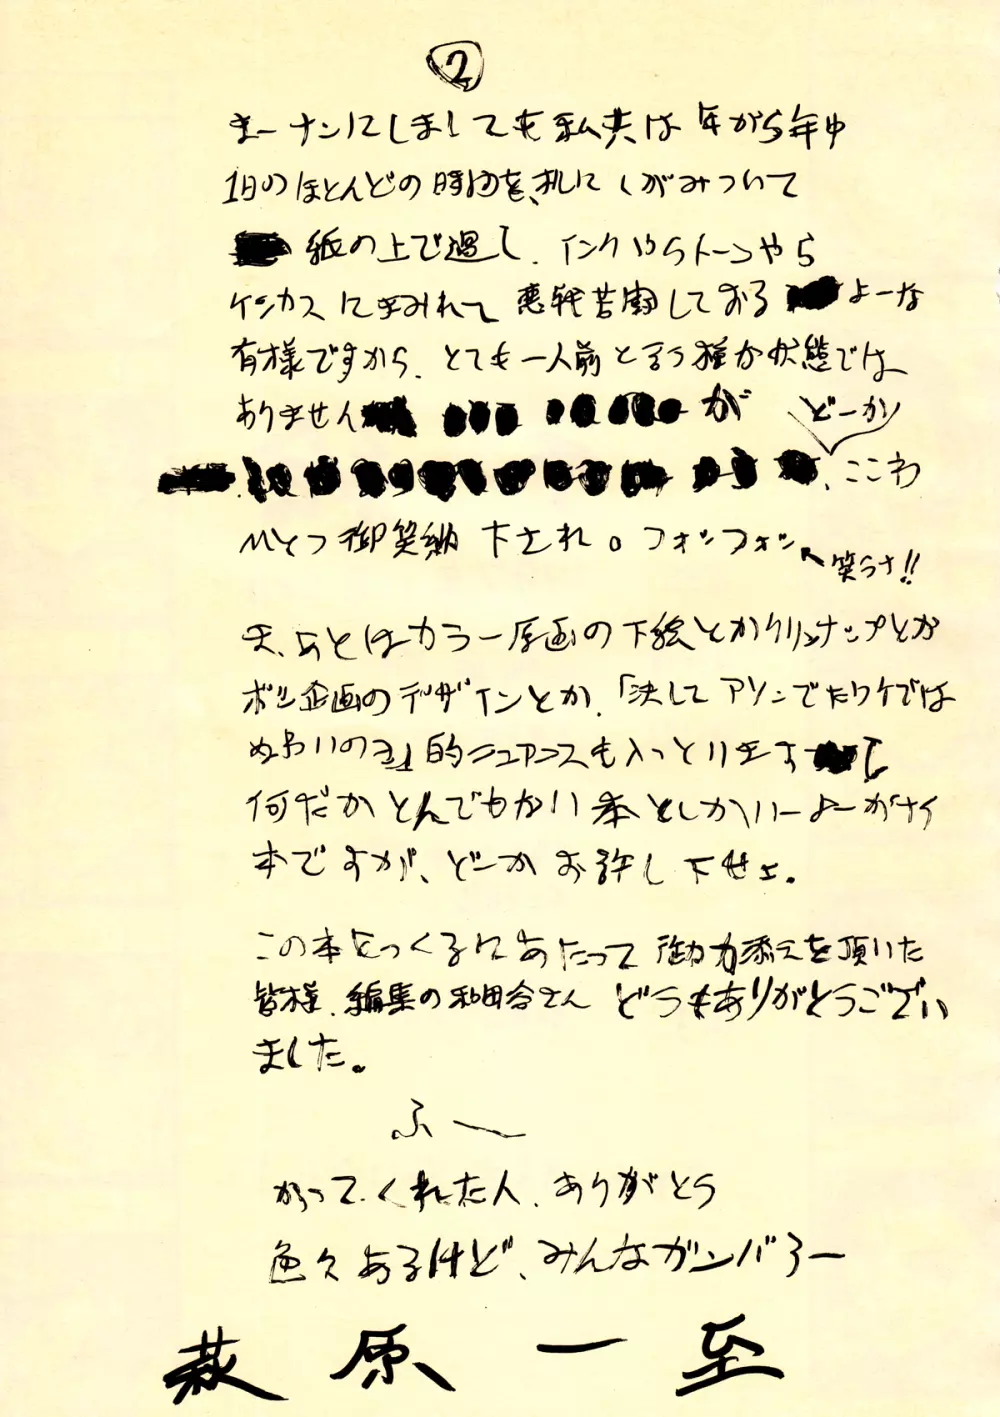 ②
まーナンにしましても私共は年がら年中
1日のほとんどの時間を、机にしがみついて
紙の上で過し、インクやらトーンやら
ケシカスにまみれて悪戦苦闘しておるよーな
有様ですから、とても一人前と言う種な状態では
ありませんが どーか
、ここわ
ひとつ御笑納下され。フォッフォッ
笑うナ!!
ま、あとはカラー原画の下絵とかクリンナップとか
ボツ企画のデザインとか、「決してアソンでたワケでは
ぬおいのヨ」的ニュアンスも入っとりまして
何だかとんでもない本としかいーよーがナイ
本ですが、どーかお許し下せェ。
この本をつくるにあたって御力添えを頂いた
皆様、編集の和田倉さん どうもありがとうござい
ました。
ふ〜
かってくれた人、ありがとう
色々あるけど、みんなガンバろー
萩原一至